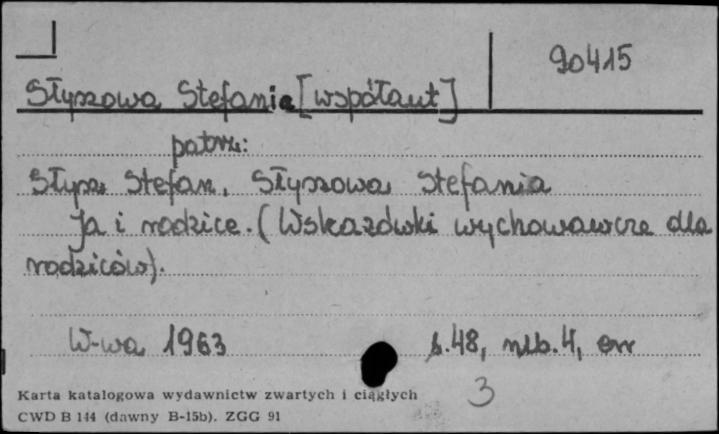 90415
Słyszowa Stefania [współaut]
patrz:
Słysz Stefan, Słyszowa Stefania
Ja i rodzice. (Wskazówki wychowawcze dla
rodziców).
W-wa 1963 s. 48, nlb. 4, err
3
Karta katalogowa wydawnictw zwartych i ciągłych
CWD B 144 (dawny B-15b). ZGG 91